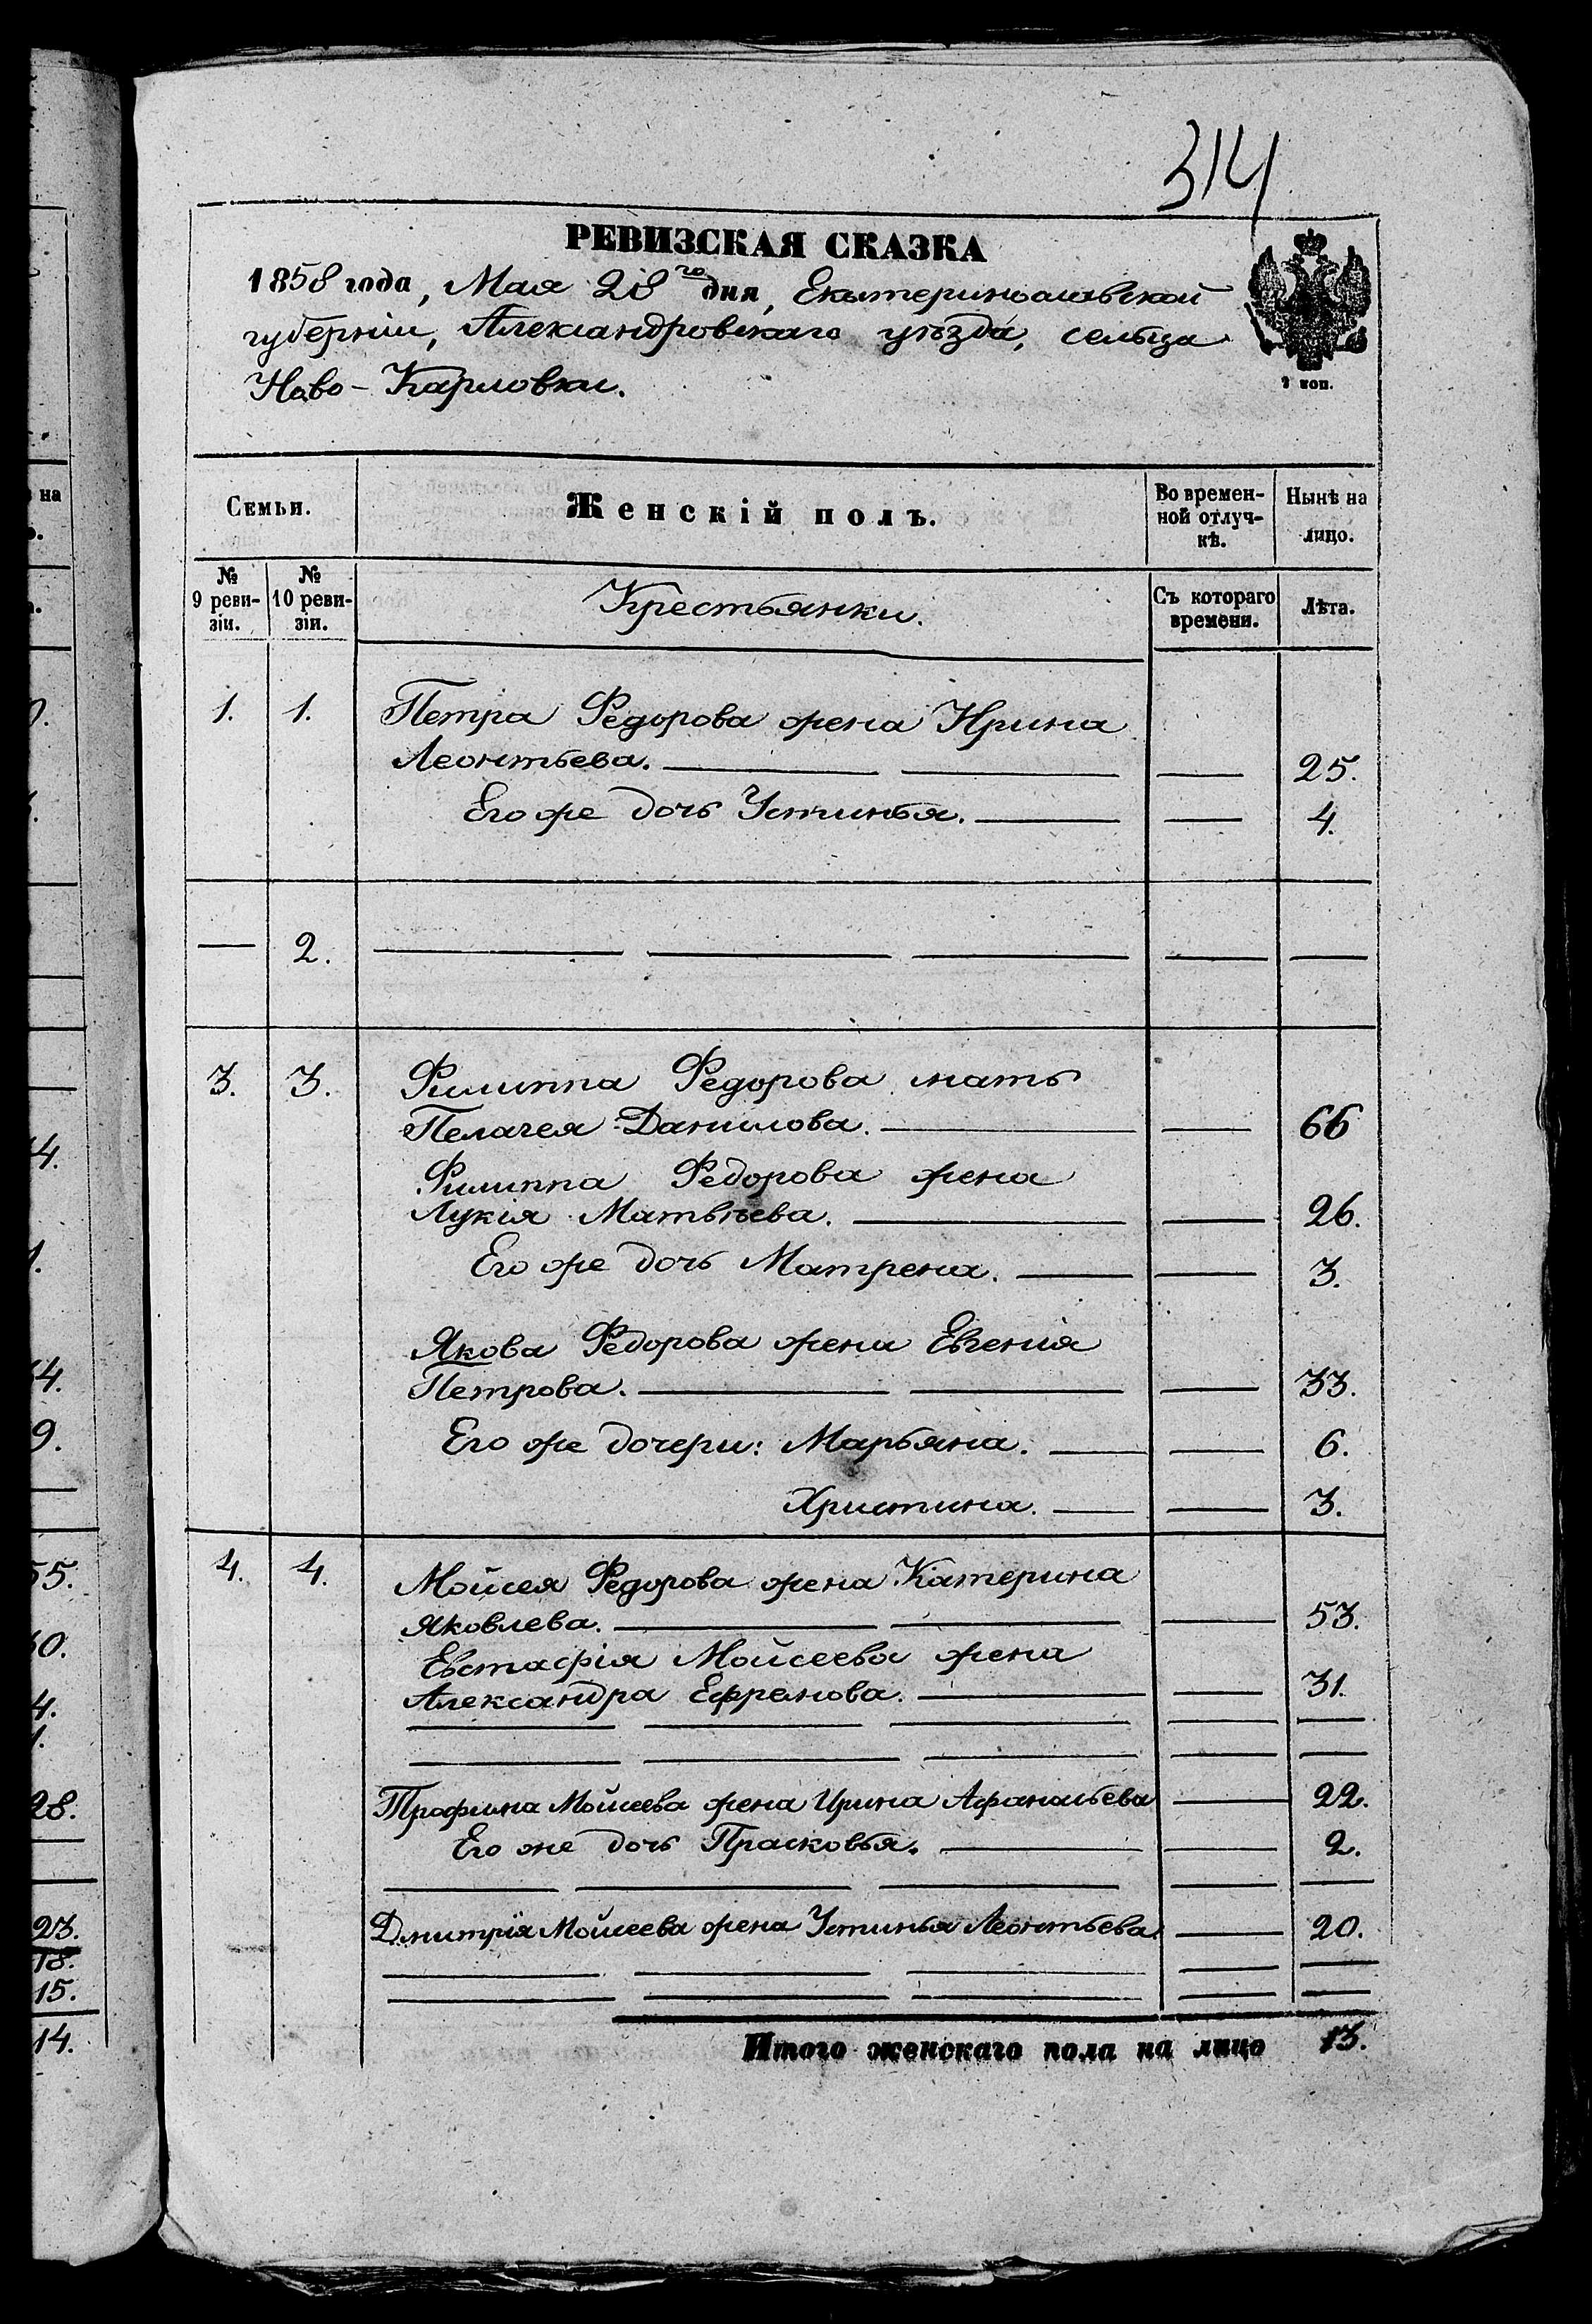 314
РЕВИЗСКАЯ СКАЗКА
1858 года, Мая 28го дня, Екатеринославской
губерніи, Александровскаго уѣзда, сельца
Ново-Карловки.
2 коп.
Семьи. Женскій полъ. Во времен- Нынѣ на
ной отлуч- лицо.
кѣ.
№ № Крестьянки. Съ котораго Лѣта.
9 реви- 10 реви- времени.
зіи. зіи.
1. 1. Петра Федорова жена Ирина
Леонтьева. 25.
Его же дочь Устинья. 4.
2.
3. 3. Филиппа Федорова мать
Пелагея Данилова. 66
Филиппа Федорова жена
Лукія Матвѣева. 26.
Его же дочь Матрена. 3.
Якова Федорова жена Евгенія
Петрова. 33.
Его же дочери: Марьяна. 6.
Христина. 3.
4. 4. Мойсея Федорова жена Катерина
Яковлева. 53.
Евстафія Мойсеева жена
Александра Ефремова. 31.
Трофима Мойсеева жена Ирина Афанасьева 22.
Его же дочь Прасковья. 2.
Дмитрія Мойсеева жена Устинья Леонтьева. 20.
Итого женскаго пола на лицо 13.
на
0.
14.
1.
14.
9.
55.
4.
1.
28.
23.
18.
15.
14.